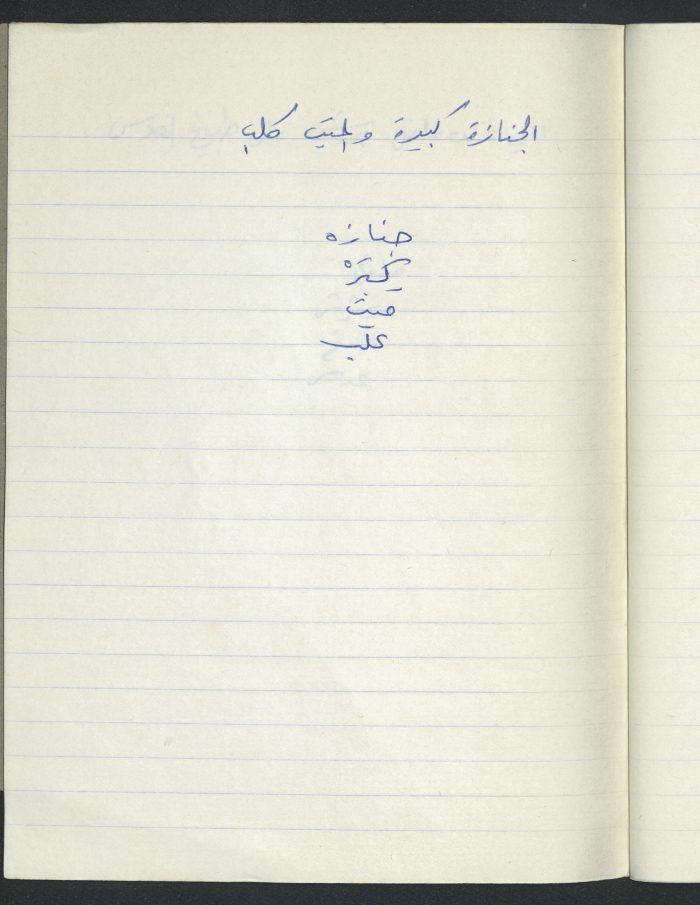 الجنازة كبيرة والميت كلب
جنازه
كبيره
ميت
كلب